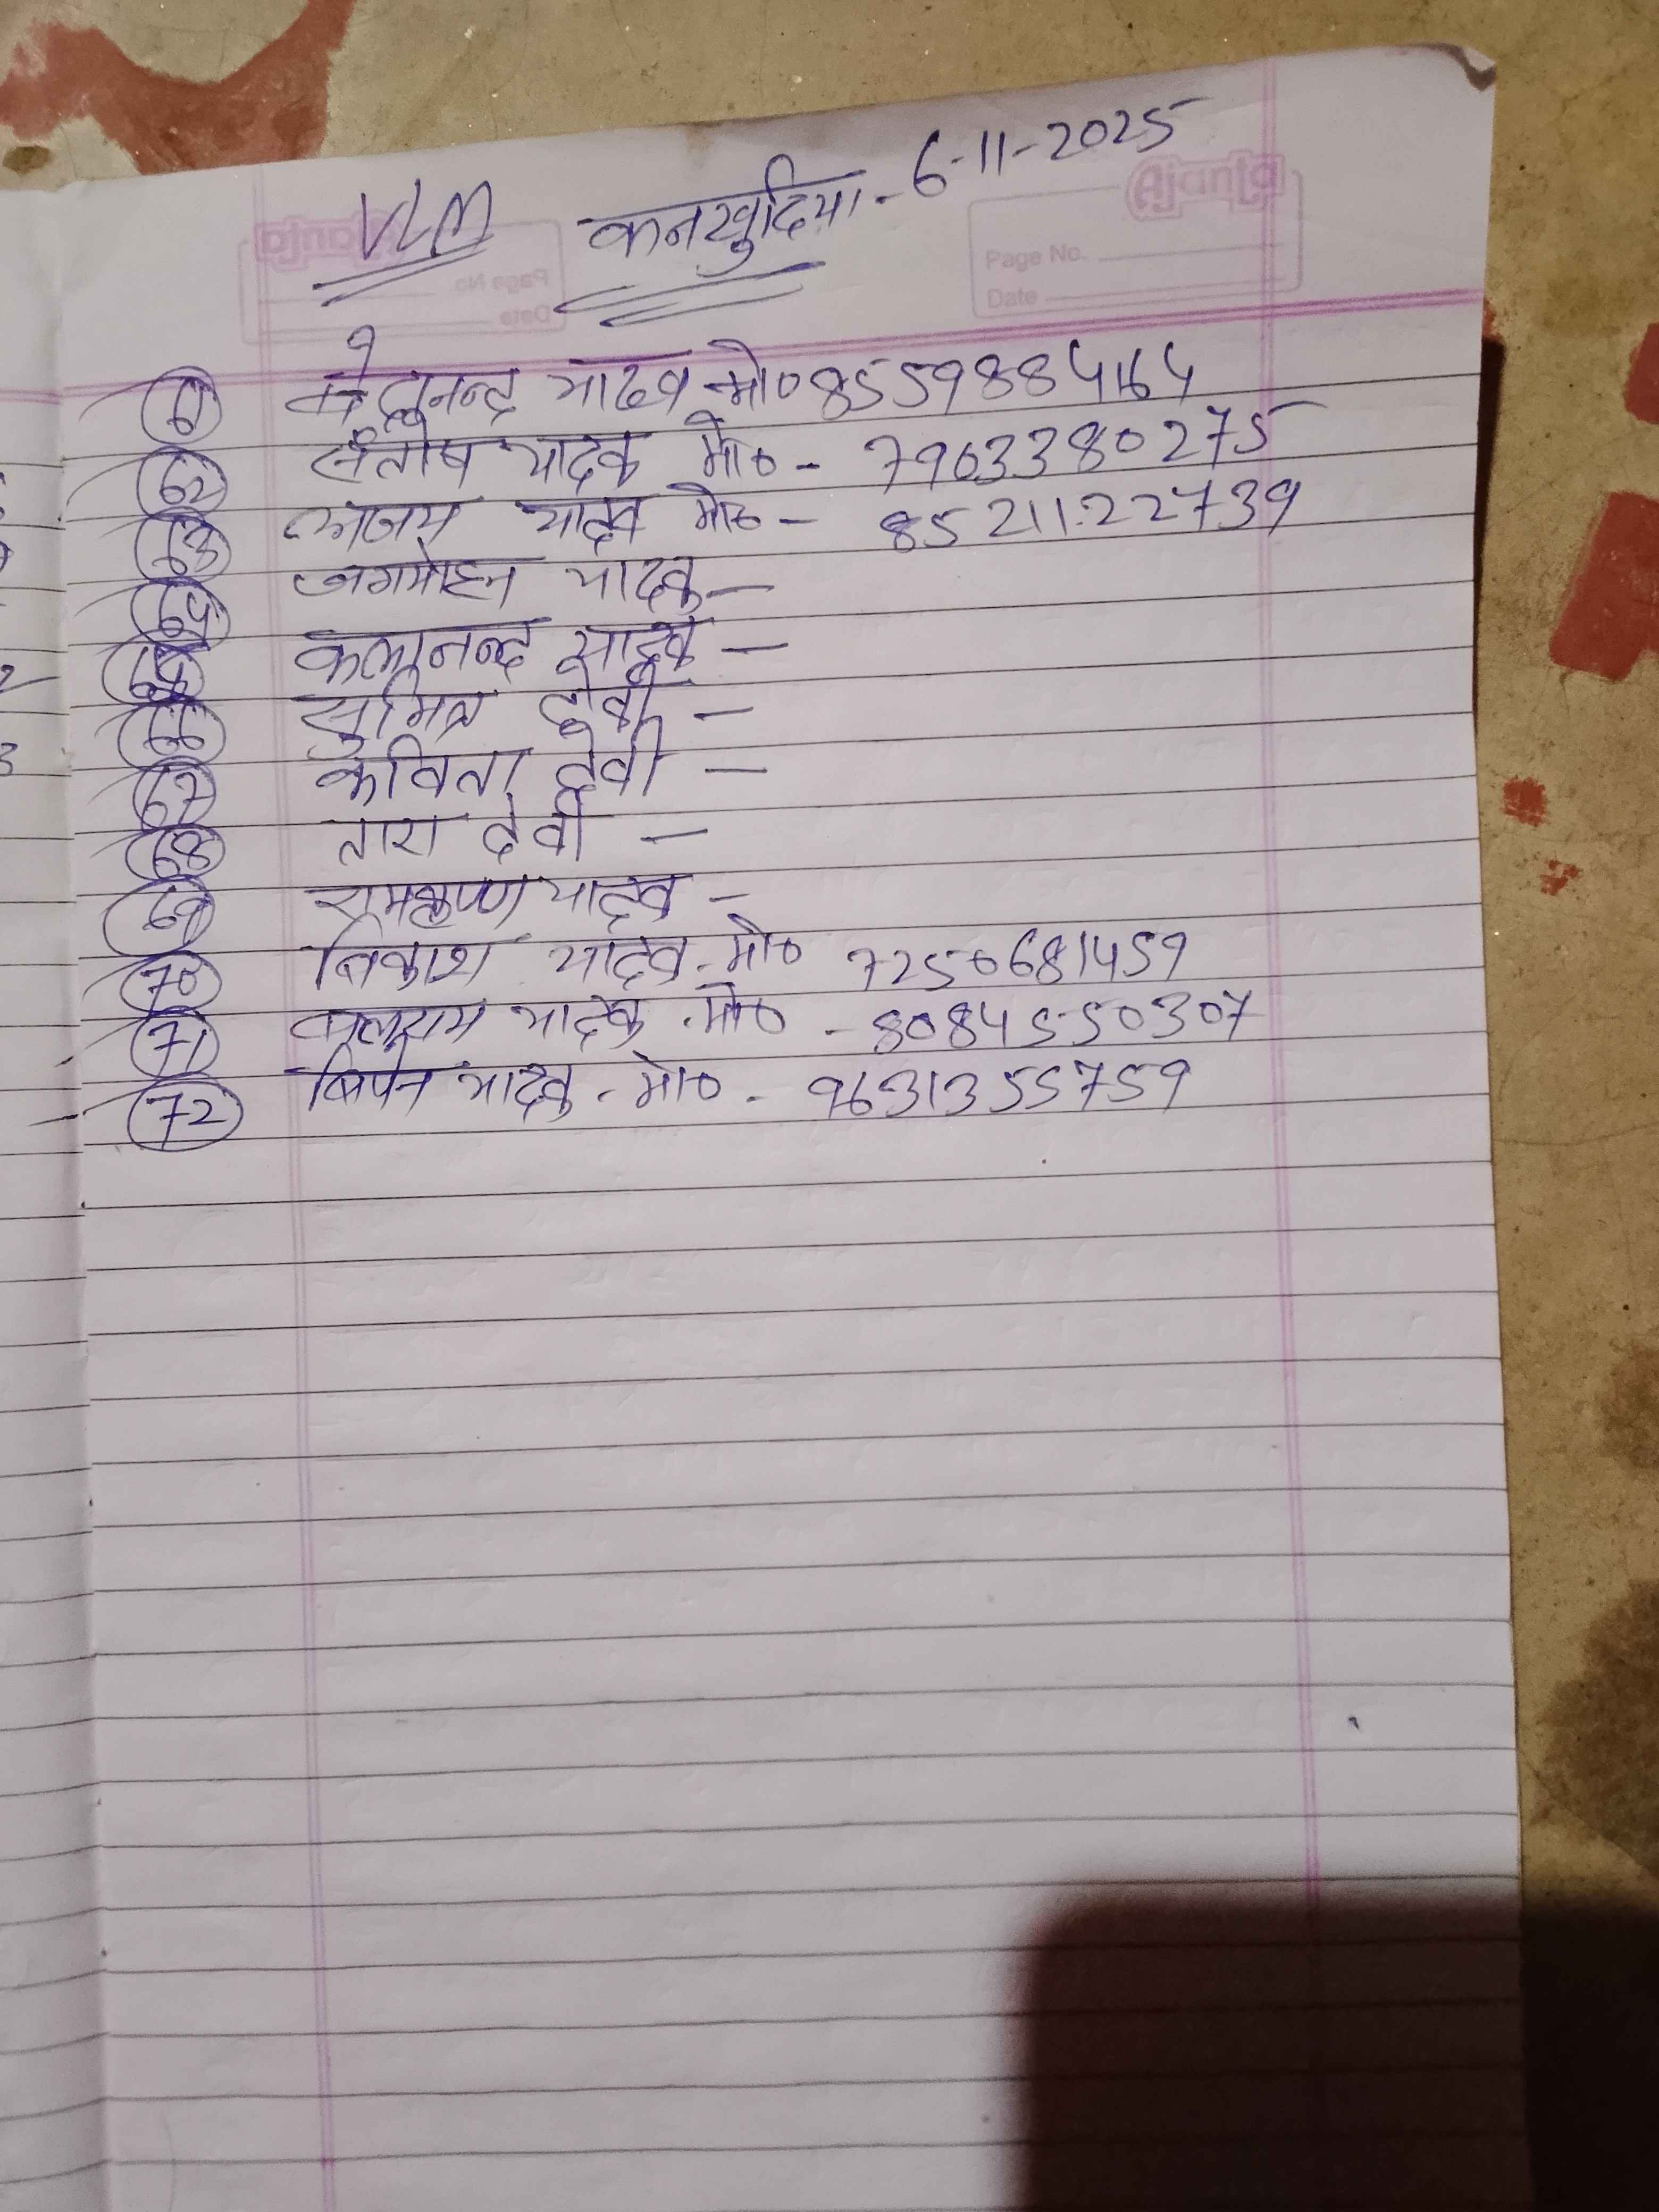 VLM कनखुदिया - 6-11-2025
Ajanta
Page No.
Date
61 यादव मो० 8559884164
62 संतोष यादव मो० - 7903380275
63 अजय यादव मो० - 8521122739
64 जगमोहन यादव -
65 यादव -
66 सुमित्र देवी -
67 कविता देवी -
68 तारा देवी -
69 रामकृष्ण यादव -
70 विकाश यादव - मो० 7250681459
71 बलराम यादव - मो० - 8084550307
72 बिपिन यादव - मो० - 9631355759